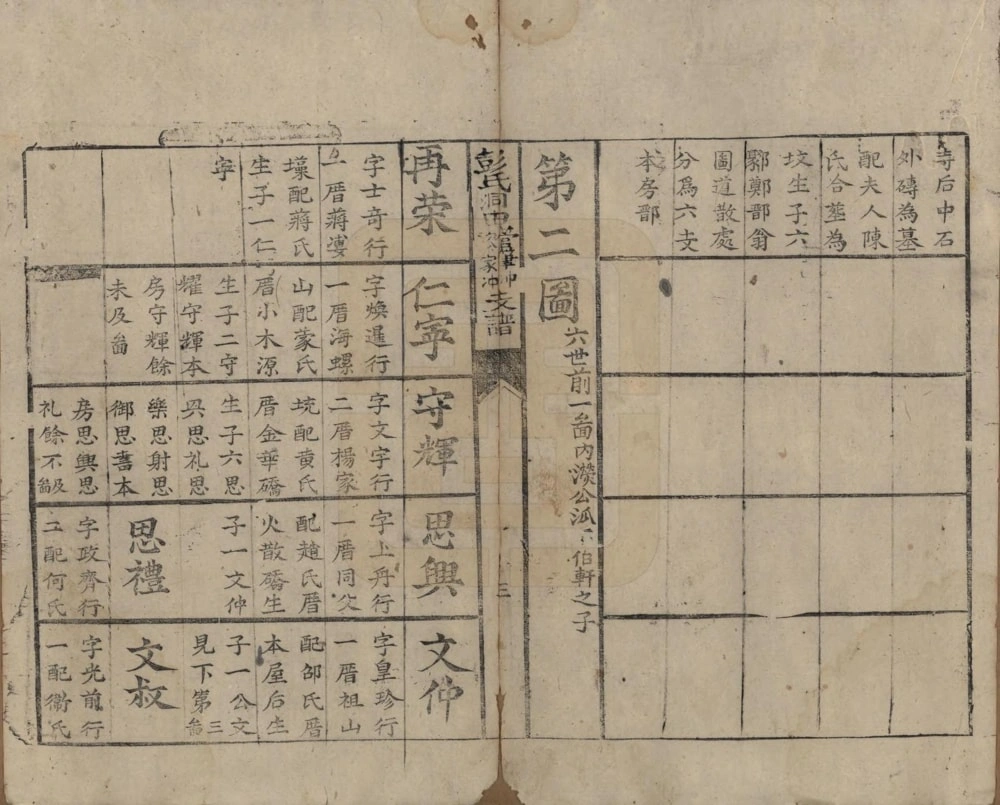 寺后中石
外磚為墓
配夫人陳
氏合塟為
坟生子六
郹鄭鄑翁
圖道散處
分為六支
本房鄑
第二圖
六世前一啚内濙公派下伯軒之子
支譜
三
再荣
字士竒行
一厝蔣塿
壤配蔣氏
生子一仁
寕
仁寕
字煥暹行
一厝海螺
山配蒙氏
厝小木源
生子二守
耀守輝本
房守輝餘
未及啚
守輝
字文字行
二厝楊家
垸配黄氏
厝金華礄
生子六思
兴思礼思
樂思射思
御思書本
房思興思
礼餘不及啚
思興
字上丹行
一厝同父
配趙氏厝
火散礄生
子一文仲
思禮
字政齊行
二配何氏
文仲
字皇珍行
一厝祖山
配邵氏厝
本屋后生
子一公文
見下第三啚
文叔
字光前行
一配衛氏